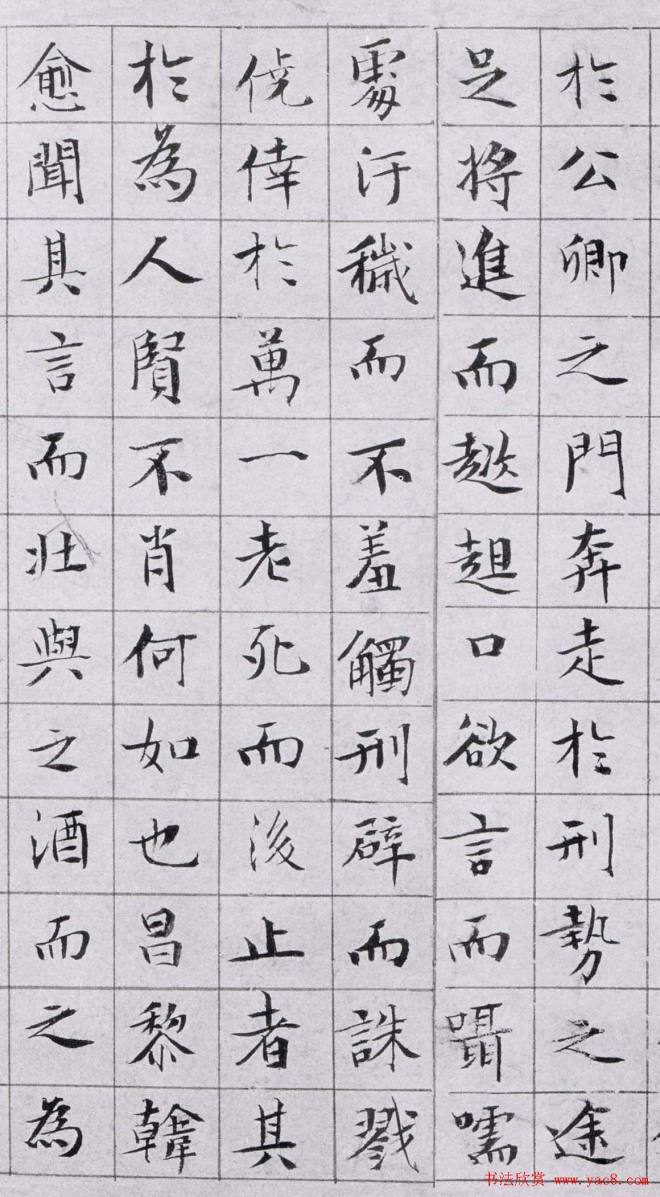 於公卿之門奔走於刑勢之途
足將進而趑趄口欲言而囁嚅
處汙穢而不羞觸刑辟而誅戮
僥倖於萬一老死而後止者其
於為人賢不肖何如也昌黎韓
愈聞其言而壯與之酒而之為
书法欣赏 www.yac8.com